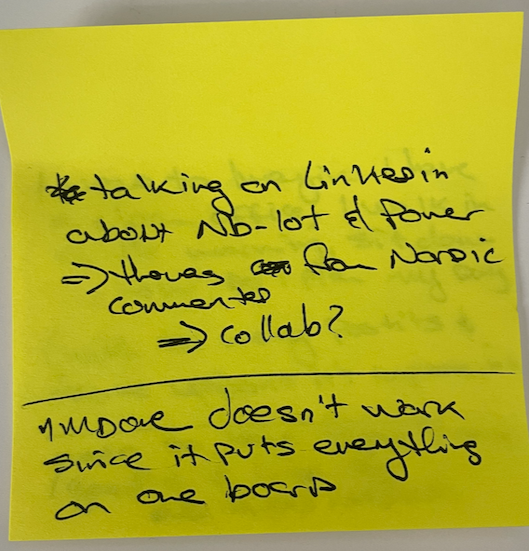 * talking on Linkedin
about Nb-Iot & Power
=> from Nordic
commented
=> collab?
doesn't work
since it puts everything
on one board